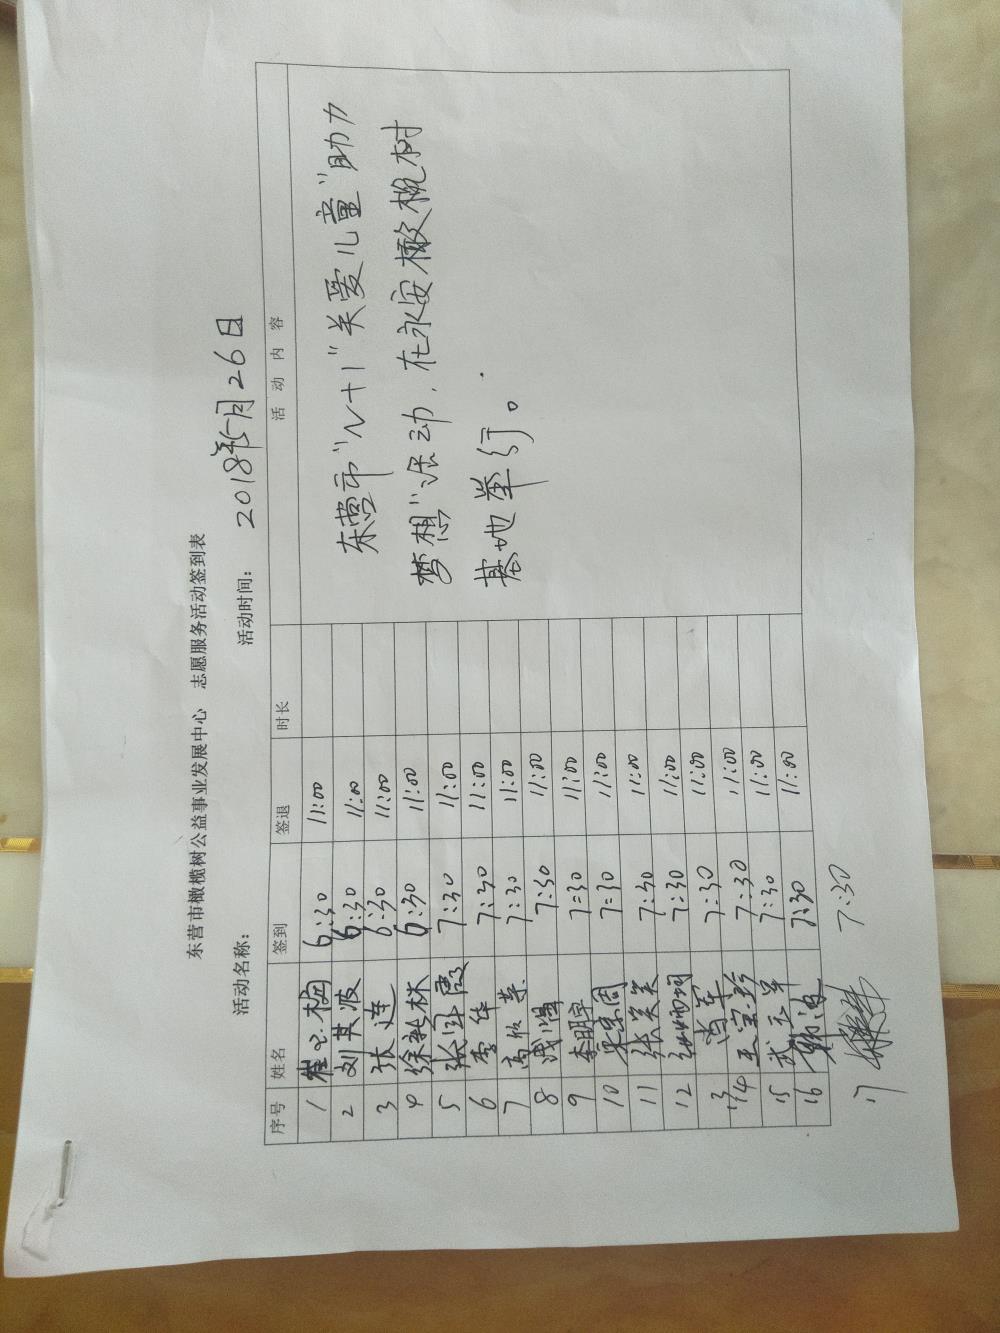 东营市橄榄树公益事业发展中心 志愿服务活动签到表
活动名称： 活动时间： 2018年5月26日
序号 姓名 签到 签退 时长 活动内容
1 6:30 11:00
2 刘其波 6:30 11:00
3 张连 6:30 11:00
4 徐新林 6:30 11:00
5 7:30 11:00
6 李华 7:30 11:00
7 7:30 11:00
8 7:30 11:00
9 李明宇 7:30 11:00
10 7:30 11:00
11 张笑笑 7:30 11:00
12 7:30 11:00
13 尚军 7:30 11:00
14 王宝珍 7:30 11:00
15 7:30 11:00
16 韩波 7:30 11:00
17 7:30
东营市"N+1"关爱儿童"助力
梦想"活动，在永安橄榄树
基地举行。